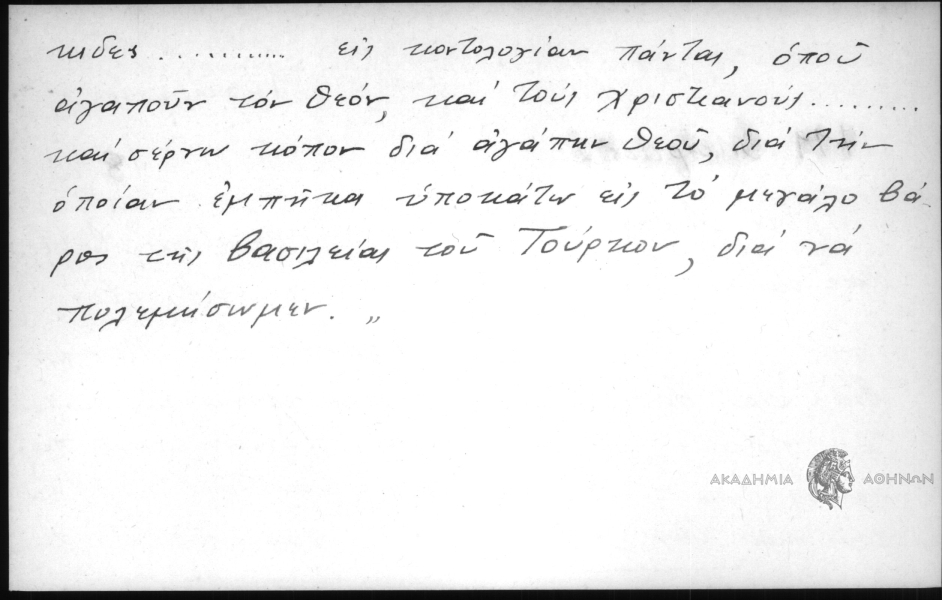 κιδες ............ εἰς κοντολογίαν πάντας, ὁποῦ
ἀγαποῦν τόν Θεόν, καί τούς Χριστιανούς.........
καί σέρνω κόπον διά ἀγάπην Θεοῦ, διά τήν
ὁποίαν ἐμπῆκα ὑποκάτω εἰς τό μεγάλο βά-
ρος τῆς βασιλείας τοῦ Τούρκου, διά νά
πολεμήσωμεν. „
ΑΚΑΔΗΜΙΑ ΑΘΗΝΩΝ